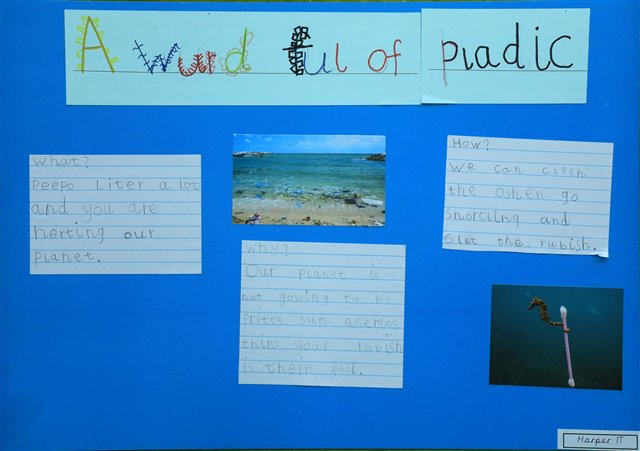 A wurd ful of pladic
What?
peepo Liter a lot
and you are
herting our
planet.
Why?
Our planet is
not gowing too be
pritee. sum anemos
thinc your rubish
is their food.
How?
we can cleen
the oshen go
snorcling and
Clet the rubish.
Harper 1T